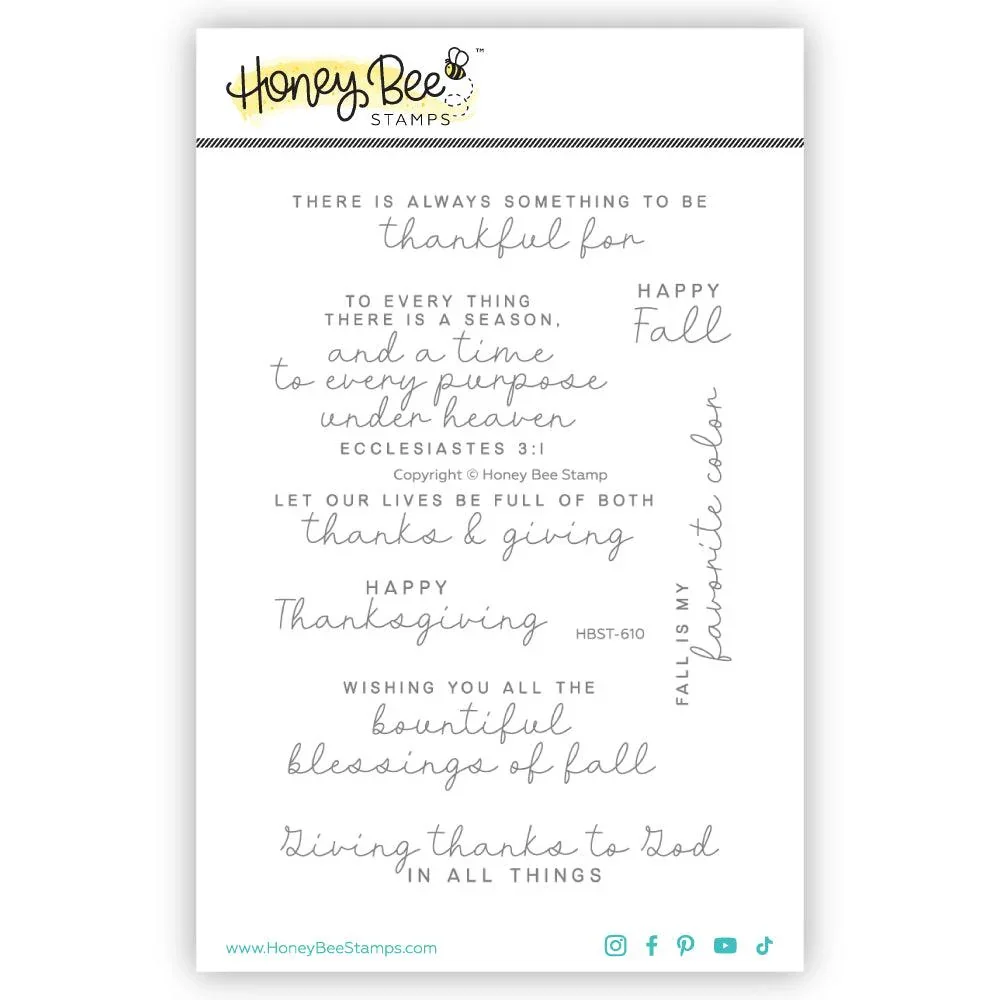 Honey Bee™
STAMPS
THERE IS ALWAYS SOMETHING TO BE
thankful for
HAPPY
Fall
TO EVERY THING
THERE IS A SEASON,
and a time
to every purpose
under heaven
ECCLESIASTES 3:1
Copyright © Honey Bee Stamp
LET OUR LIVES BE FULL OF BOTH
thanks & giving
FALL IS MY
favorite color
HAPPY
Thanksgiving
HBST-610
WISHING YOU ALL THE
bountiful
blessings of fall
Giving thanks to God
IN ALL THINGS
www.HoneyBeeStamps.com